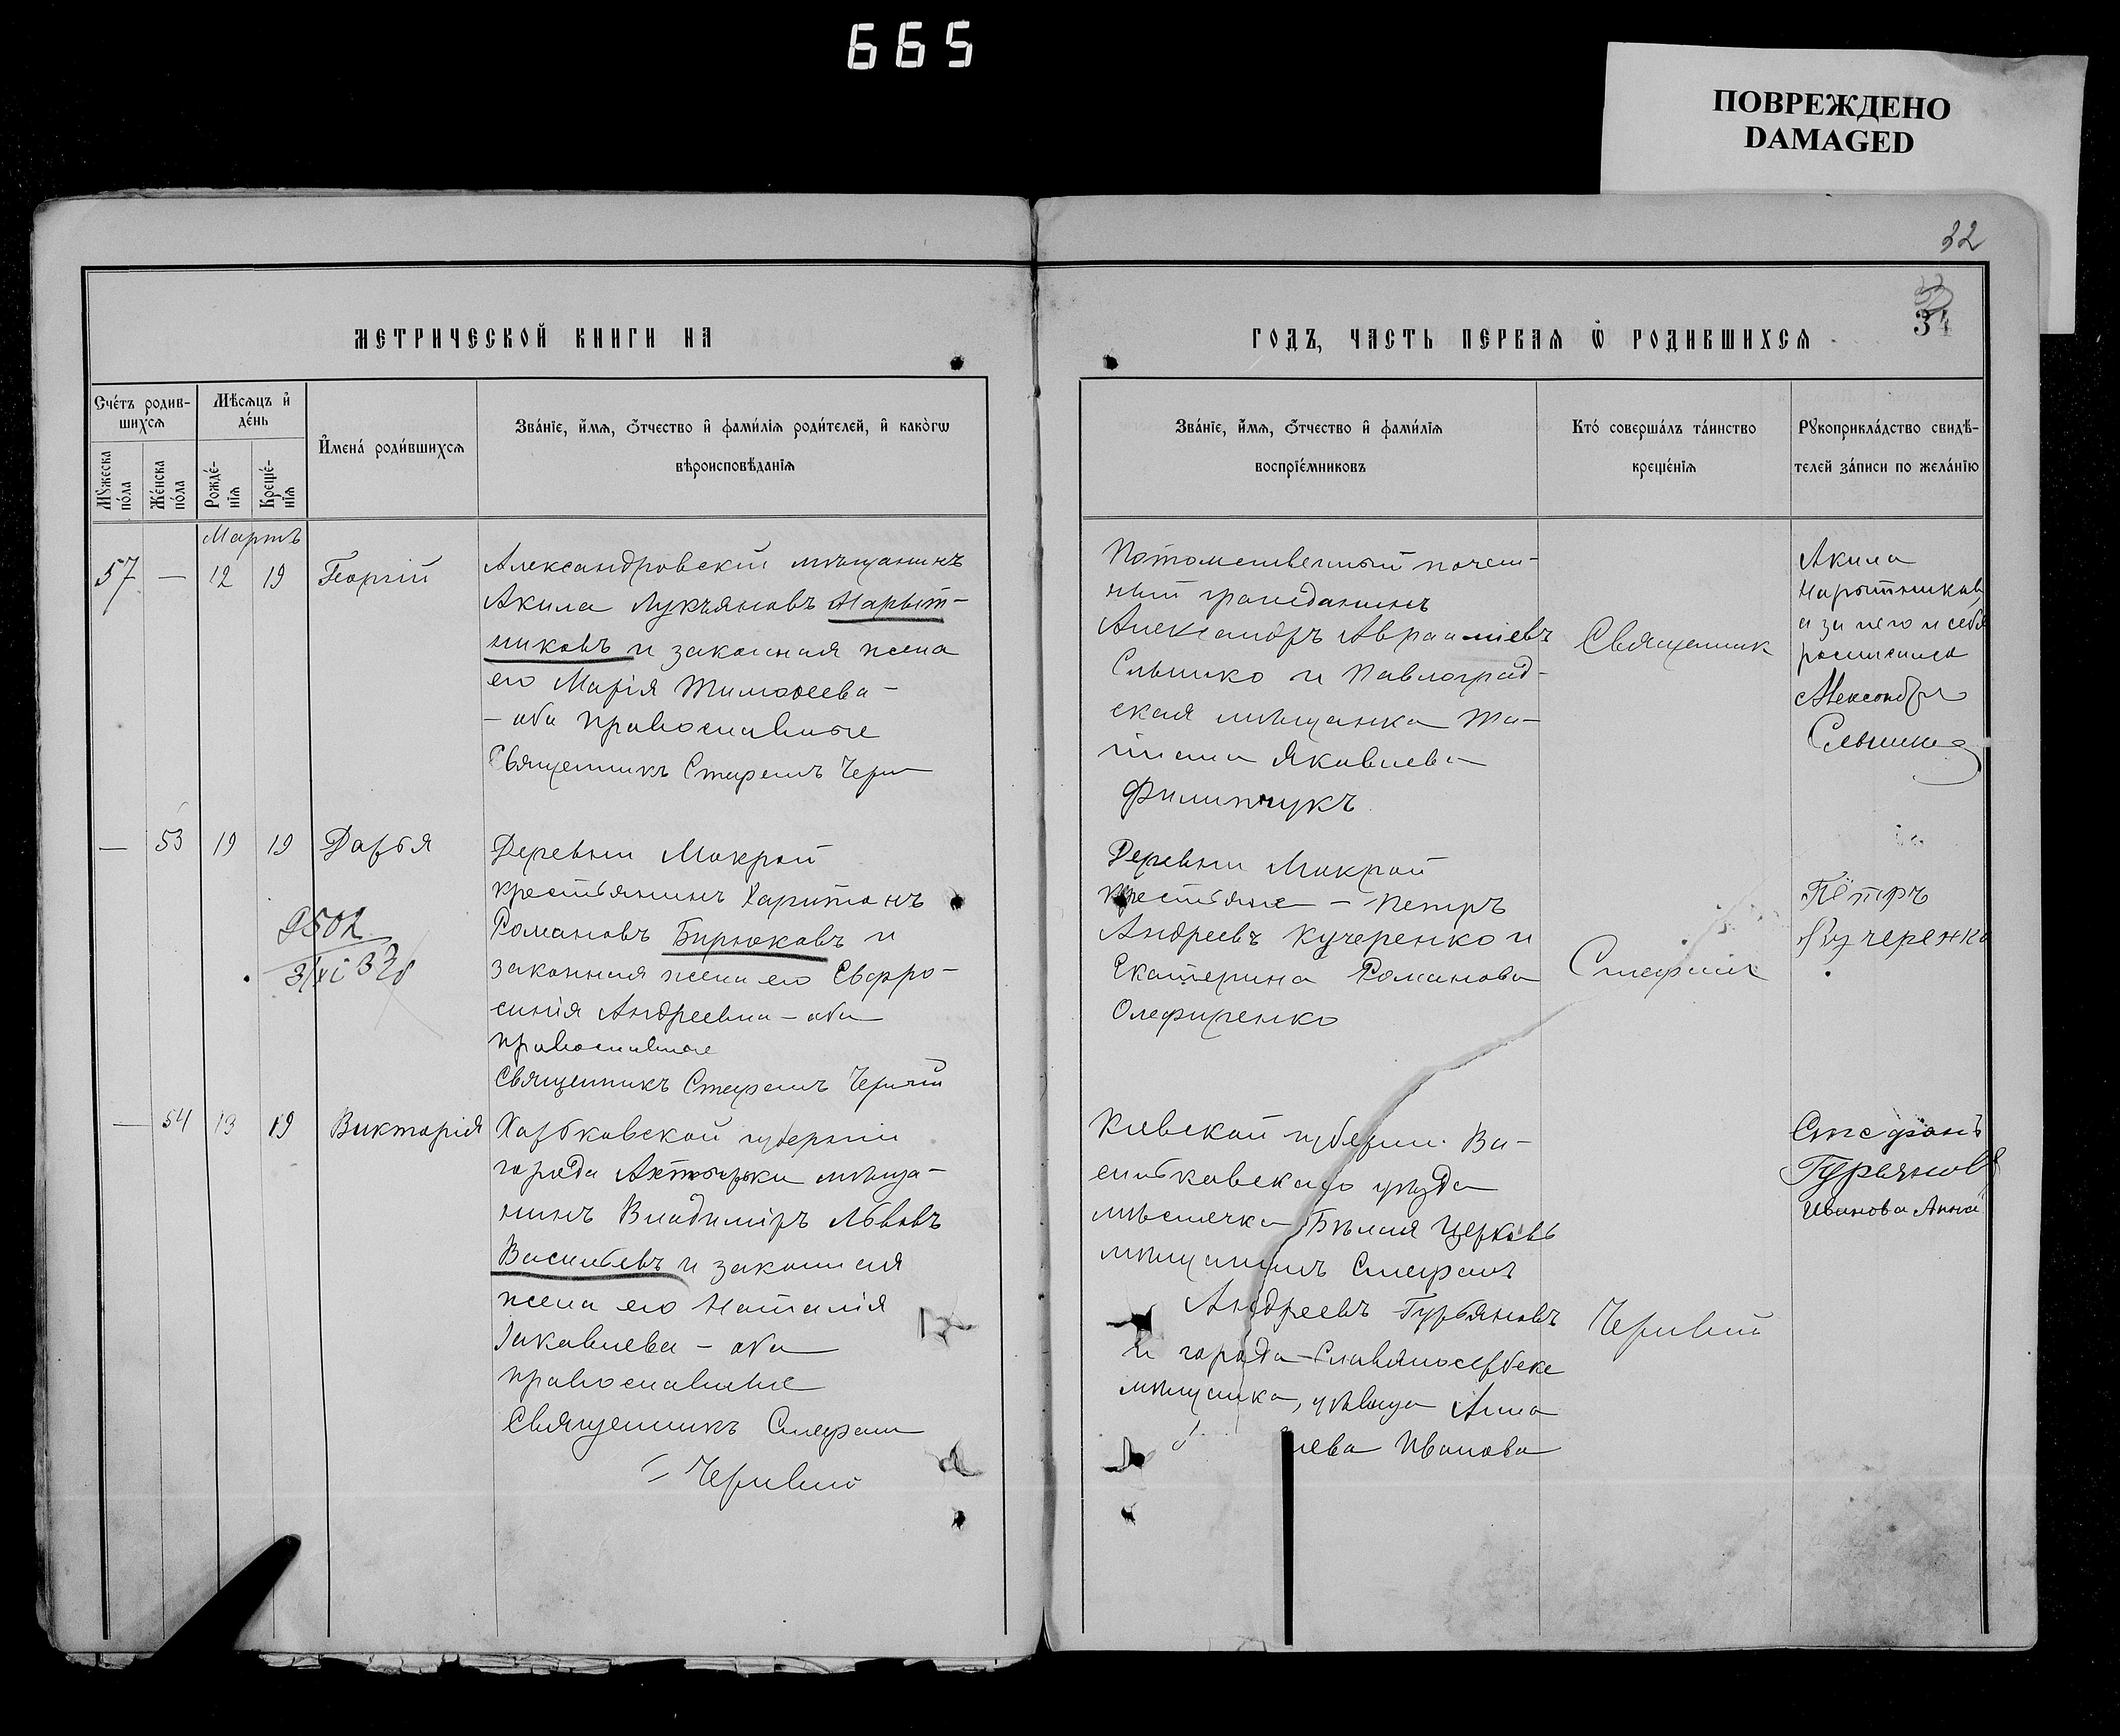 665
ПОВРЕЖДЕНО
DAMAGED
32
34
МЕТРИЧЕСКОЙ КНИГИ НА
ГОДЪ, ЧАСТЬ ПЕРВАЯ Ѡ РОДИВШИХСЯ
Счетъ родив-
шихся
Мѣсяцъ и
день
Мужеска
пола
Женска
пола
Рожде-
нія
Креще-
нія
Имена родившихся
Званіе, имя, отчество и фамилія родителей, и какогѡ
вѣроисповѣданія
Званіе, имя, отчество и фамилія
воспріемниковъ
Кто совершалъ таинство
крещенія
Рукоприкладство свидѣ-
телей записи по желанію
Мартъ
57 — 12 19 Георгій
Александровскій мѣщанинъ
Акила Лукьяновъ Нарыт-
никовъ и законная жена
его Марія Тимоѳеева -
- оба православные
Священникъ Стефанъ
Потомственный почет-
ный гражданинъ
Александръ Аврааміевъ
и Павлоград-
ская мѣщанка
Яковлева
Филипчукъ
Священник
Акила
Нарытников,
а за него и себя
росписался
Александръ
— 53 19 19 Дарья
Деревни Мокрой
крестьянинъ Харитонъ
Романовъ Бирюковъ и
законная жена его Евфро-
синія Андреевна - оба
православные
Священникъ Стефанъ
9502
Деревни Мокрой
крестьяне - Петръ
Андреевъ Кучеренко и
Екатерина Романова
Олефиренко
Стефанъ
Пётръ
Кучеренко
— 54 13 19 Викторія
Харьковской губерніи
города Ахтырки мѣща-
нинъ Владиміръ Львовъ
Васильевъ и законная
жена его Наталія
Іаковлева - оба
православные
Священникъ Стефанъ
Кіевской губерніи Ва-
сильковскаго уѣзда
мѣстечка Бѣлая Церковь
мѣщанинъ Стефанъ
Андреевъ Гурьяновъ
и города Славяносербска
мѣщанка, дѣвица Анна
Иванова
Стефанъ
Гурьяновъ
Иванова Анна